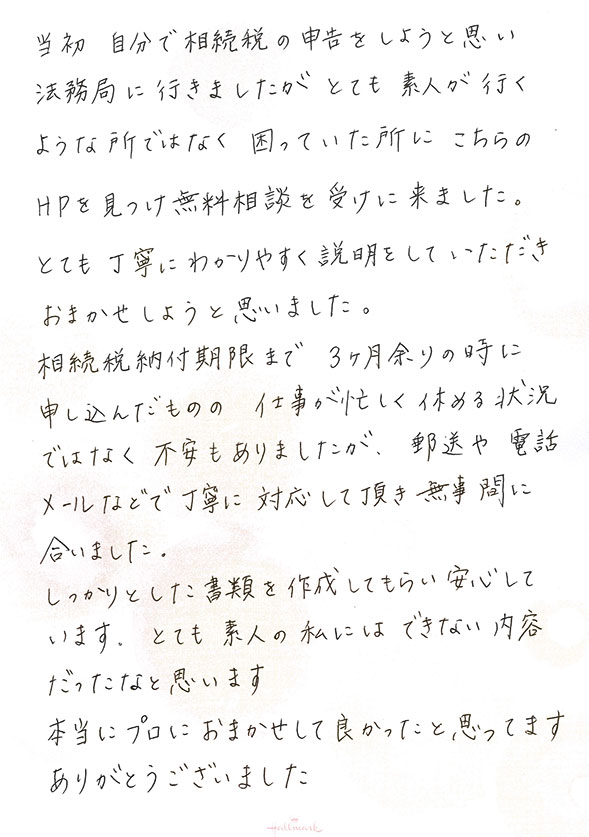 当初 自分で相続税の申告をしようと思い
法務局に行きましたが とても 素人が行く
ような所ではなく 困っていた所に こちらの
HPを見つけ無料相談を受けに来ました。
とても丁寧にわかりやすく説明をしていただき
おまかせしようと思いました。
相続税納付期限まで 3ヶ月余りの時に
申し込んだものの 仕事が忙しく休める状況
ではなく 不安もありましたが、郵送や 電話
メールなどで丁寧に対応して頂き無事間に
合いました。
しっかりとした書類を作成してもらい安心して
います。とても素人の私には できない内容
だったなと思います
本当にプロにおまかせして良かったと思ってます
ありがとうございました
Hallmark